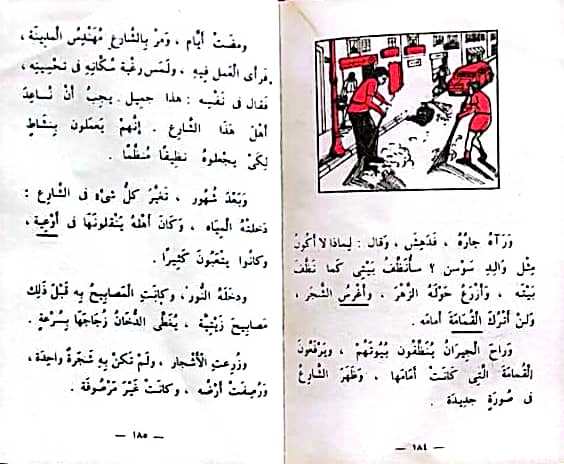 وَرَآهُ جارُهُ ، فَدَهِشَ ، وَقال : لِماذا لا أَكُونُ
مِثْلَ والِدِ سَوْسَنَ ؟ سَأُنَظِّفُ بَيْتِي كَما نَظَّفَ
بَيْتَهُ ، وَأَزْرَعُ حَوْلَهُ الزَّهْرَ ، وَأَغْرِسُ الشَّجَرَ ،
وَلَنْ أَتْرُكَ الْقُمَامَةَ أَمامَهُ .
وَراحَ الْجِيرَانُ يُنَظِّفُونَ بُيُوتَهُمْ ، وَيَرْفَعُونَ
الْقُمامَةَ الَّتِي كَانَتْ أَمَامَهَا ، وَظَهَرَ الشَّارِعُ
فِي صُورَةٍ جَدِيدَةٍ .
— ١٨٤ —
وَمَضَتْ أَيَّام ، وَمَرَّ بِالشَّارِعِ مُهَنْدِسُ الْمَدِينَةِ ،
فَرَأَى الْعَمَلَ فِيهِ ، وَلَمَسَ رَغْبَةَ سُكَّانِهِ فِي تَحْسِينِهِ ،
فَقالَ فِي نَفْسِهِ : هذا جَمِيل . يَجِبُ أَنْ نُسَاعِدَ
أَهْلَ هَذَا الشَّارِعِ . إِنَّهُمْ يَعْمَلُونَ بِنَشَاطٍ
لِكَيْ يَجْعَلُوهُ نَظِيفًا مُنَظَّمًا .
وَبَعْدَ شُهُورٍ ، تَغَيَّرَ كُلُّ شَيْءٍ فِي الشَّارِعِ :
دَخَلَتْهُ الْمِيَاه ، وَكَانَ أَهْلُهُ يَنْقُلُونَهَا فِي أَوْعِيَةٍ ،
وَكَانُوا يَتْعَبُونَ كَثِيرًا .
وَدَخَلَهُ النُّورُ ، وَكَانَتِ الْمَصَابِيحُ بِهِ قَبْلَ ذَلِكَ
مَصَابِيحَ زَيْتِيَّةً ، يُغَطِّى الدُّخَانُ زُجَاجَهَا بِسُرْعَةٍ .
وَزُرِعَتِ الْأَشْجَار ، وَلَمْ تَكُنْ بِهِ شَجَرَةٌ وَاحِدَة ،
وَرُصِفَتْ أَرْضُه ، وَكَانَتْ غَيْرَ مَرْصُوفَة .
— ١٨٥ —